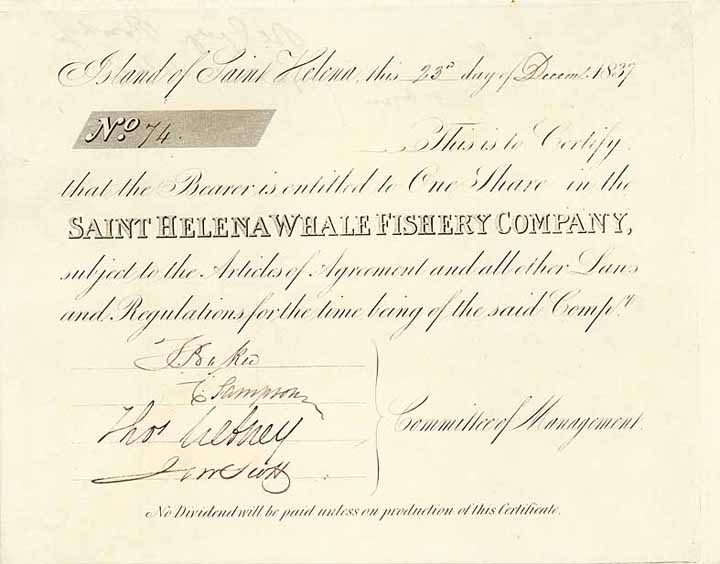 Island of Saint Helena, this 23d day of Decemr. 1837
No. 74.
This is to Certify
that the Bearer is entitled to One Share in the
SAINT HELENA WHALE FISHERY COMPANY,
subject to the Articles of Agreement and all other Laws
and Regulations for the time being of the said Compy.
Sampson
Thos
Committee of Management.
No Dividend will be paid unless on production of this Certificate.